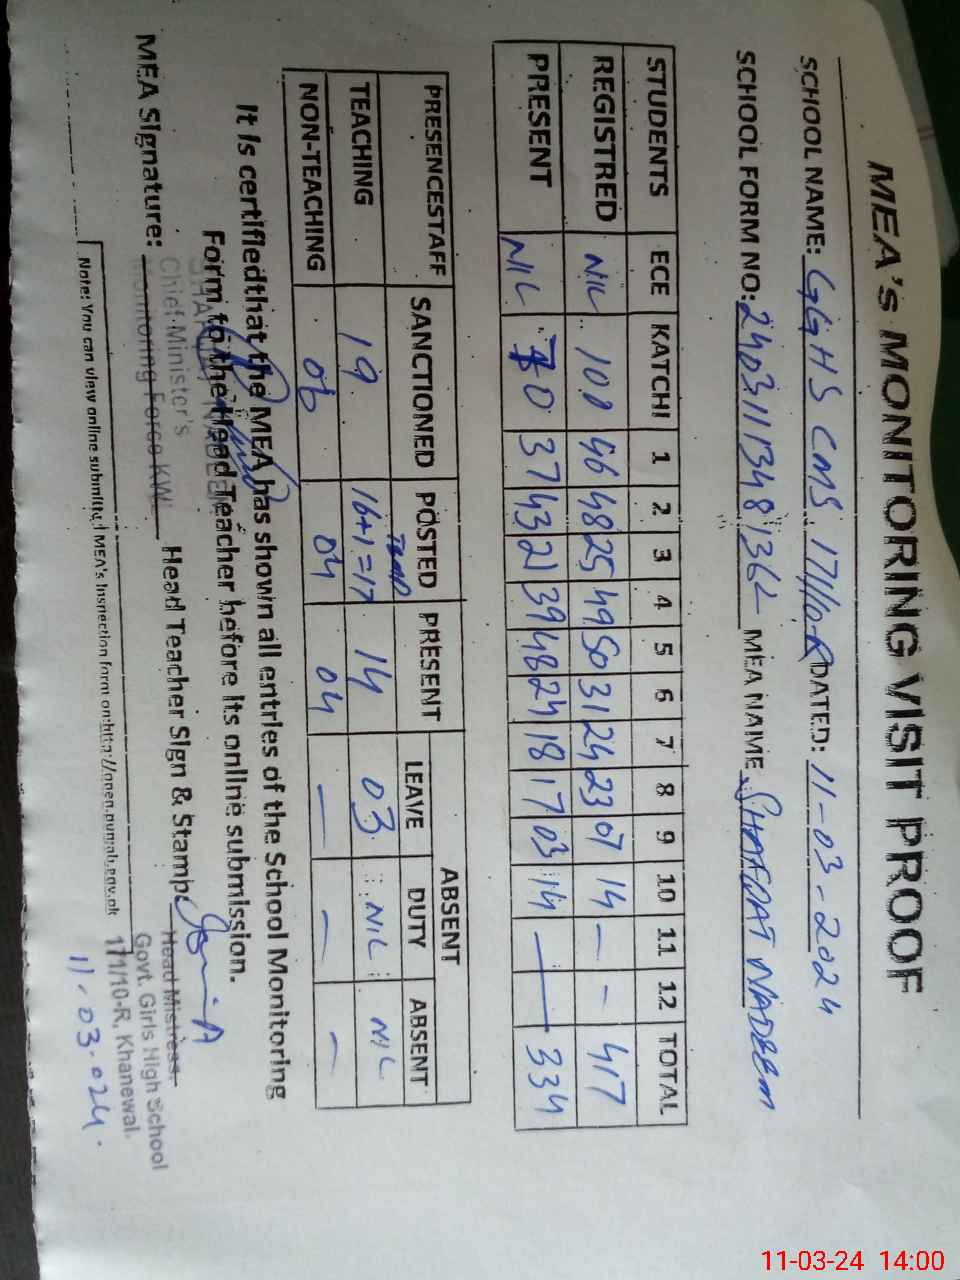 MEA's MONITORING VISIT PROOF
SCHOOL NAME: GGHS CMS 171/10-R DATED: 11-03-2024
SCHOOL FORM NO: MEA NAME SHAFQAT NADEEM
STUDENTS ECE KATCHI 1 2 3 4 5 6 7 8 9 10 11 12 TOTAL
REGISTRED NIL 100 46 48 25 49 50 31 24 23 07 14 - - 417
PRESENT NIL 70 37 43 21 39 48 24 18 17 03 14 — 334
PRESENCESTAFF SANCTIONED POSTED PRESENT ABSENT
LEAVE DUTY ABSENT
TEACHING 19 16+1=17 Temp 14 03 NIL NIL
NON-TEACHING 06 04 04 — — —
It is certifiedthat the MEA has shown all entries of the School Monitoring
Form to the Head Teacher before its online submission.
MEA Signature: Head Teacher Sign & Stamp:
SHAFQAT NADEEM
Chief Minister's
Monitoring Force KWL
Head Mistress
Govt. Girls High School
171/10-R, Khanewal.
11-03-024.
Note: You can view online submitted MEA's Inspection form on:http://open.punjab.gov.pk
11-03-24 14:00